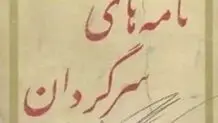 نامه های
سرگردان